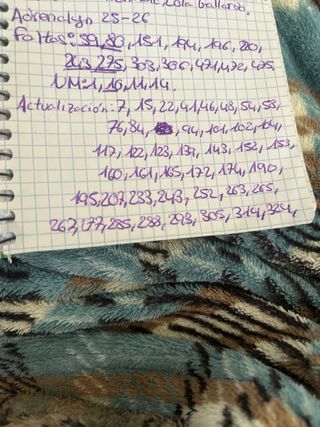 Lola Gallardo.
Adrenalyn 25-26
Faltas: 59, 80, 151, 194, 196, 210,
263, 275, 303, 306, 471, 472, 475
NM: 1, 10, 11, 14.
Actualización: 7, 15, 22, 41, 46, 48, 54, 58,
76, 84, 94, 101, 102, 104,
117, 122, 123, 137, 143, 152, 153,
160, 161, 165, 172, 174, 190,
195, 207, 233, 243, 252, 263, 265,
267, 277, 285, 288, 293, 305, 314, 324,